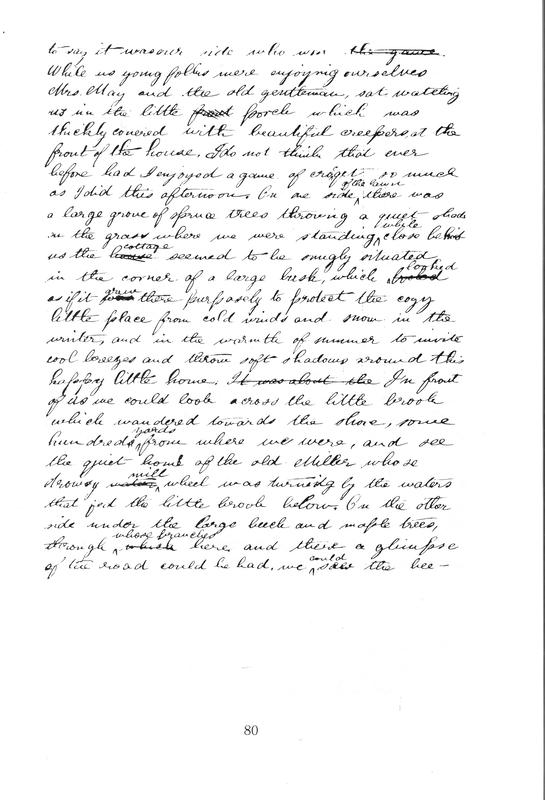 to say it was our side who won the game.
While us young folks were enjoying ourselves
Mrs. May and the old gentleman, sat watching
us in the little porch which was
thickly covered with beautiful creepers at the
front of the house, I do not think that ever
before had I enjoyed a game of so much
as I did this afternoon. On one side of the lawn there was
a large grove of spruce trees throwing a quiet shade
on the grass where we were standing while close behind
us the house cottage seemed to be snugly situated
in the corner of a large which looked
as if it grew there purposely to protect the cozy
little place from cold winds and snow in the
winter, and in the warmth of summer to invite
cool breezes and throw soft shadows around this
happy little home. It was about the In front
of us we could look across the little brook
which wandered towards the shore, some
hundreds yards from where we were, and see
the quiet home of the old Miller whose
drowsy water mill wheel was turning by the waters
that fed the little brook below. On the other
side under the large beech and maple trees,
through which whose branches here and there a glimpse
of the road could be had, we could saw the bee-
80